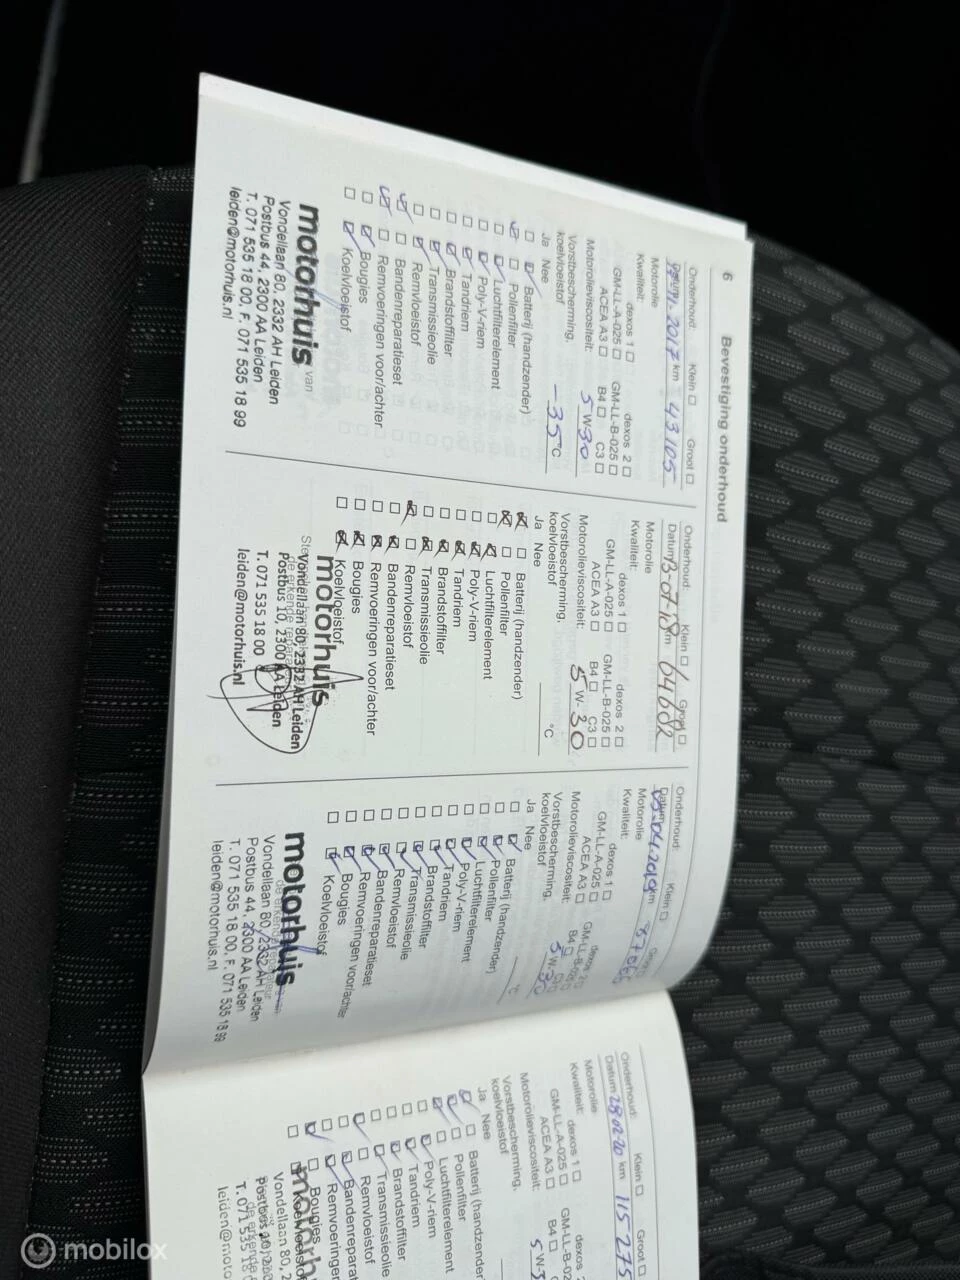 6 Bevestiging onderhoud
Onderhoud: Klein Groot
Datum 2017 km 43105
Motorolie
Kwaliteit: dexos 1 dexos 2
GM-LL-A-025 GM-LL-B-025
ACEA A3 B4 C3
Motorolieviscositeit: 5 W 30
Vorstbescherming,
koelvloeistof -35 °C
Ja Nee
Batterij (handzender)
Pollenfilter
Luchtfilterelement
Poly-V-riem
Tandriem
Brandstoffilter
Transmissieolie
Remvloeistof
Bandenreparatieset
Remvoeringen voor/achter
Bougies
Koelvloeistof
motorhuis
Vondellaan 80, 2332 AH Leiden
Postbus 44, 2300 AA Leiden
T. 071 535 18 00, F. 071 535 18 99
leiden@motorhuis.nl
Onderhoud: Klein Groot
Datum 13-07-18 km 64682
Motorolie
Kwaliteit: dexos 1 dexos 2
GM-LL-A-025 GM-LL-B-025
ACEA A3 B4 C3
Motorolieviscositeit: 5 W-30
Vorstbescherming,
koelvloeistof °C
Ja Nee
Batterij (handzender)
Pollenfilter
Luchtfilterelement
Poly-V-riem
Tandriem
Brandstoffilter
Transmissieolie
Remvloeistof
Bandenreparatieset
Remvoeringen voor/achter
Bougies
Koelvloeistof
motorhuis
Vondellaan 80, 2332 AH Leiden
Postbus 10, 2300 AA Leiden
T. 071 535 18 00
leiden@motorhuis.nl
Onderhoud: Klein
Datum 03-04-2019 km
Motorolie
Kwaliteit: dexos 1 dexos 2
GM-LL-A-025 GM-LL-B-025
ACEA A3 B4
Motorolieviscositeit: 5 W 30
Vorstbescherming,
koelvloeistof °C
Ja Nee
Batterij (handzender)
Pollenfilter
Luchtfilterelement
Poly-V-riem
Tandriem
Brandstoffilter
Transmissieolie
Remvloeistof
Bandenreparatieset
Remvoeringen voor/achter
Bougies
Koelvloeistof
motorhuis
Vondellaan 80, 2332 AH Leiden
Postbus 44, 2300 AA Leiden
T. 071 535 18 00, F. 071 535 18 99
leiden@motorhuis.nl
Onderhoud: Klein Groot
Datum 28 02-20 km 115275
Motorolie
Kwaliteit: dexos 1 dexos 2
GM-LL-A-025 GM-LL-B-02
ACEA A3 B4
Motorolieviscositeit: 5 W
Vorstbescherming,
koelvloeistof
Ja Nee
Batterij (handzender
Pollenfilter
Luchtfilterelement
Poly-V-riem
Tandriem
Brandstoffilter
Transmissieolie
Remvloeistof
Bandenreparat
Remvoeringen
Bougies
motorh
Vondellaan 80, 2
T. 071 535 18
leiden@moto
mobilox